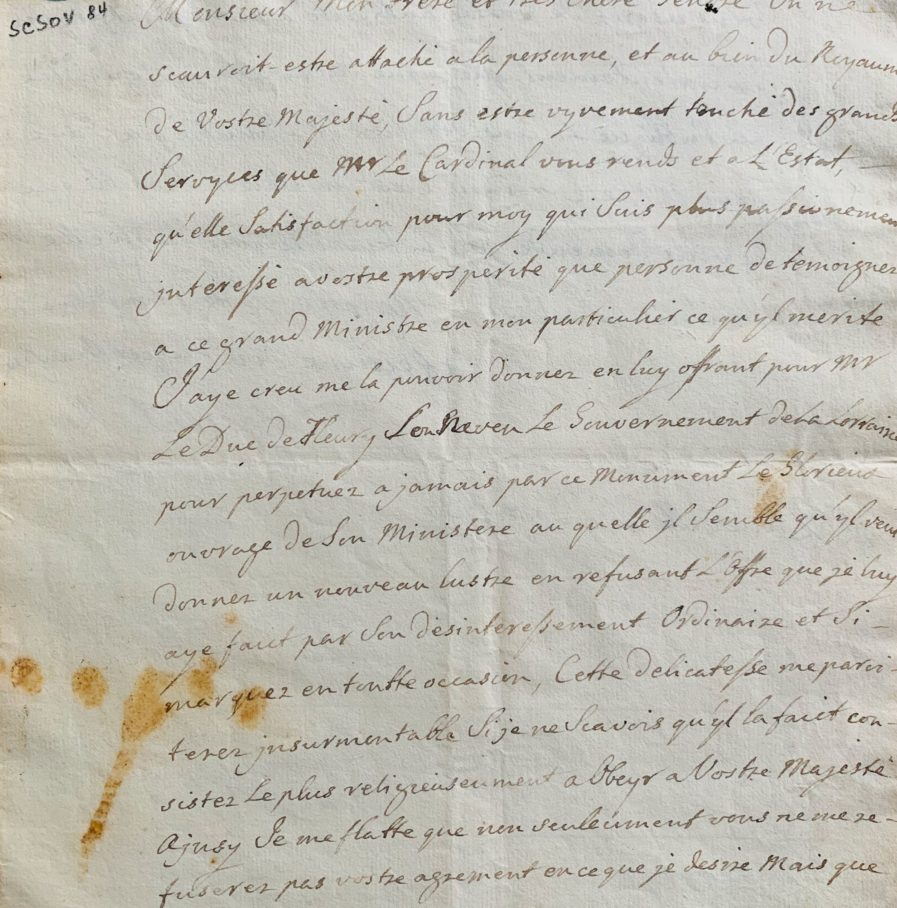 SCSOV 84
Monsieur Mon Frere et tres chere Gendre On ne
scauroit estre attaché a la personne, et au bien du Royaum
de Vostre Majesté, Sans estre vyvement touché des grands
Servyces que Mr Le Cardinal vous rends et a L'Estat,
qu'elle Satisfaction pour moy qui Suis plus passionémen
jnteressé a vostre prosperité que personne de temoigner
a ce grand Ministre en mon particulier ce qu'yl merite
J'aye creu me la pouvoir donner en luy offrant pour Mr
Le Duc de Fleury Son Neveu Le Gouvernement de la Lorraine
pour perpetuer a jamais par ce Monument Le Glorieux
ouvrage de Son Ministere au quelle jl Semble qu'yl veut
donner un nouveau lustre en refusant L'Offre que je luy
aye fait par Son désinteressement Ordinaire et Si
marquez en toutte occasion, Cette delicatesse me paroi-
terez jnsurmontable Si je ne Scavois qu'yl la fait con-
sister Le plus religieuseument a Obbeyr a Vostre Majesté
Ajnsy Je me flatte que non seuleument vous ne me re-
fuserez pas vostre agrement en ce que je desire Mais que